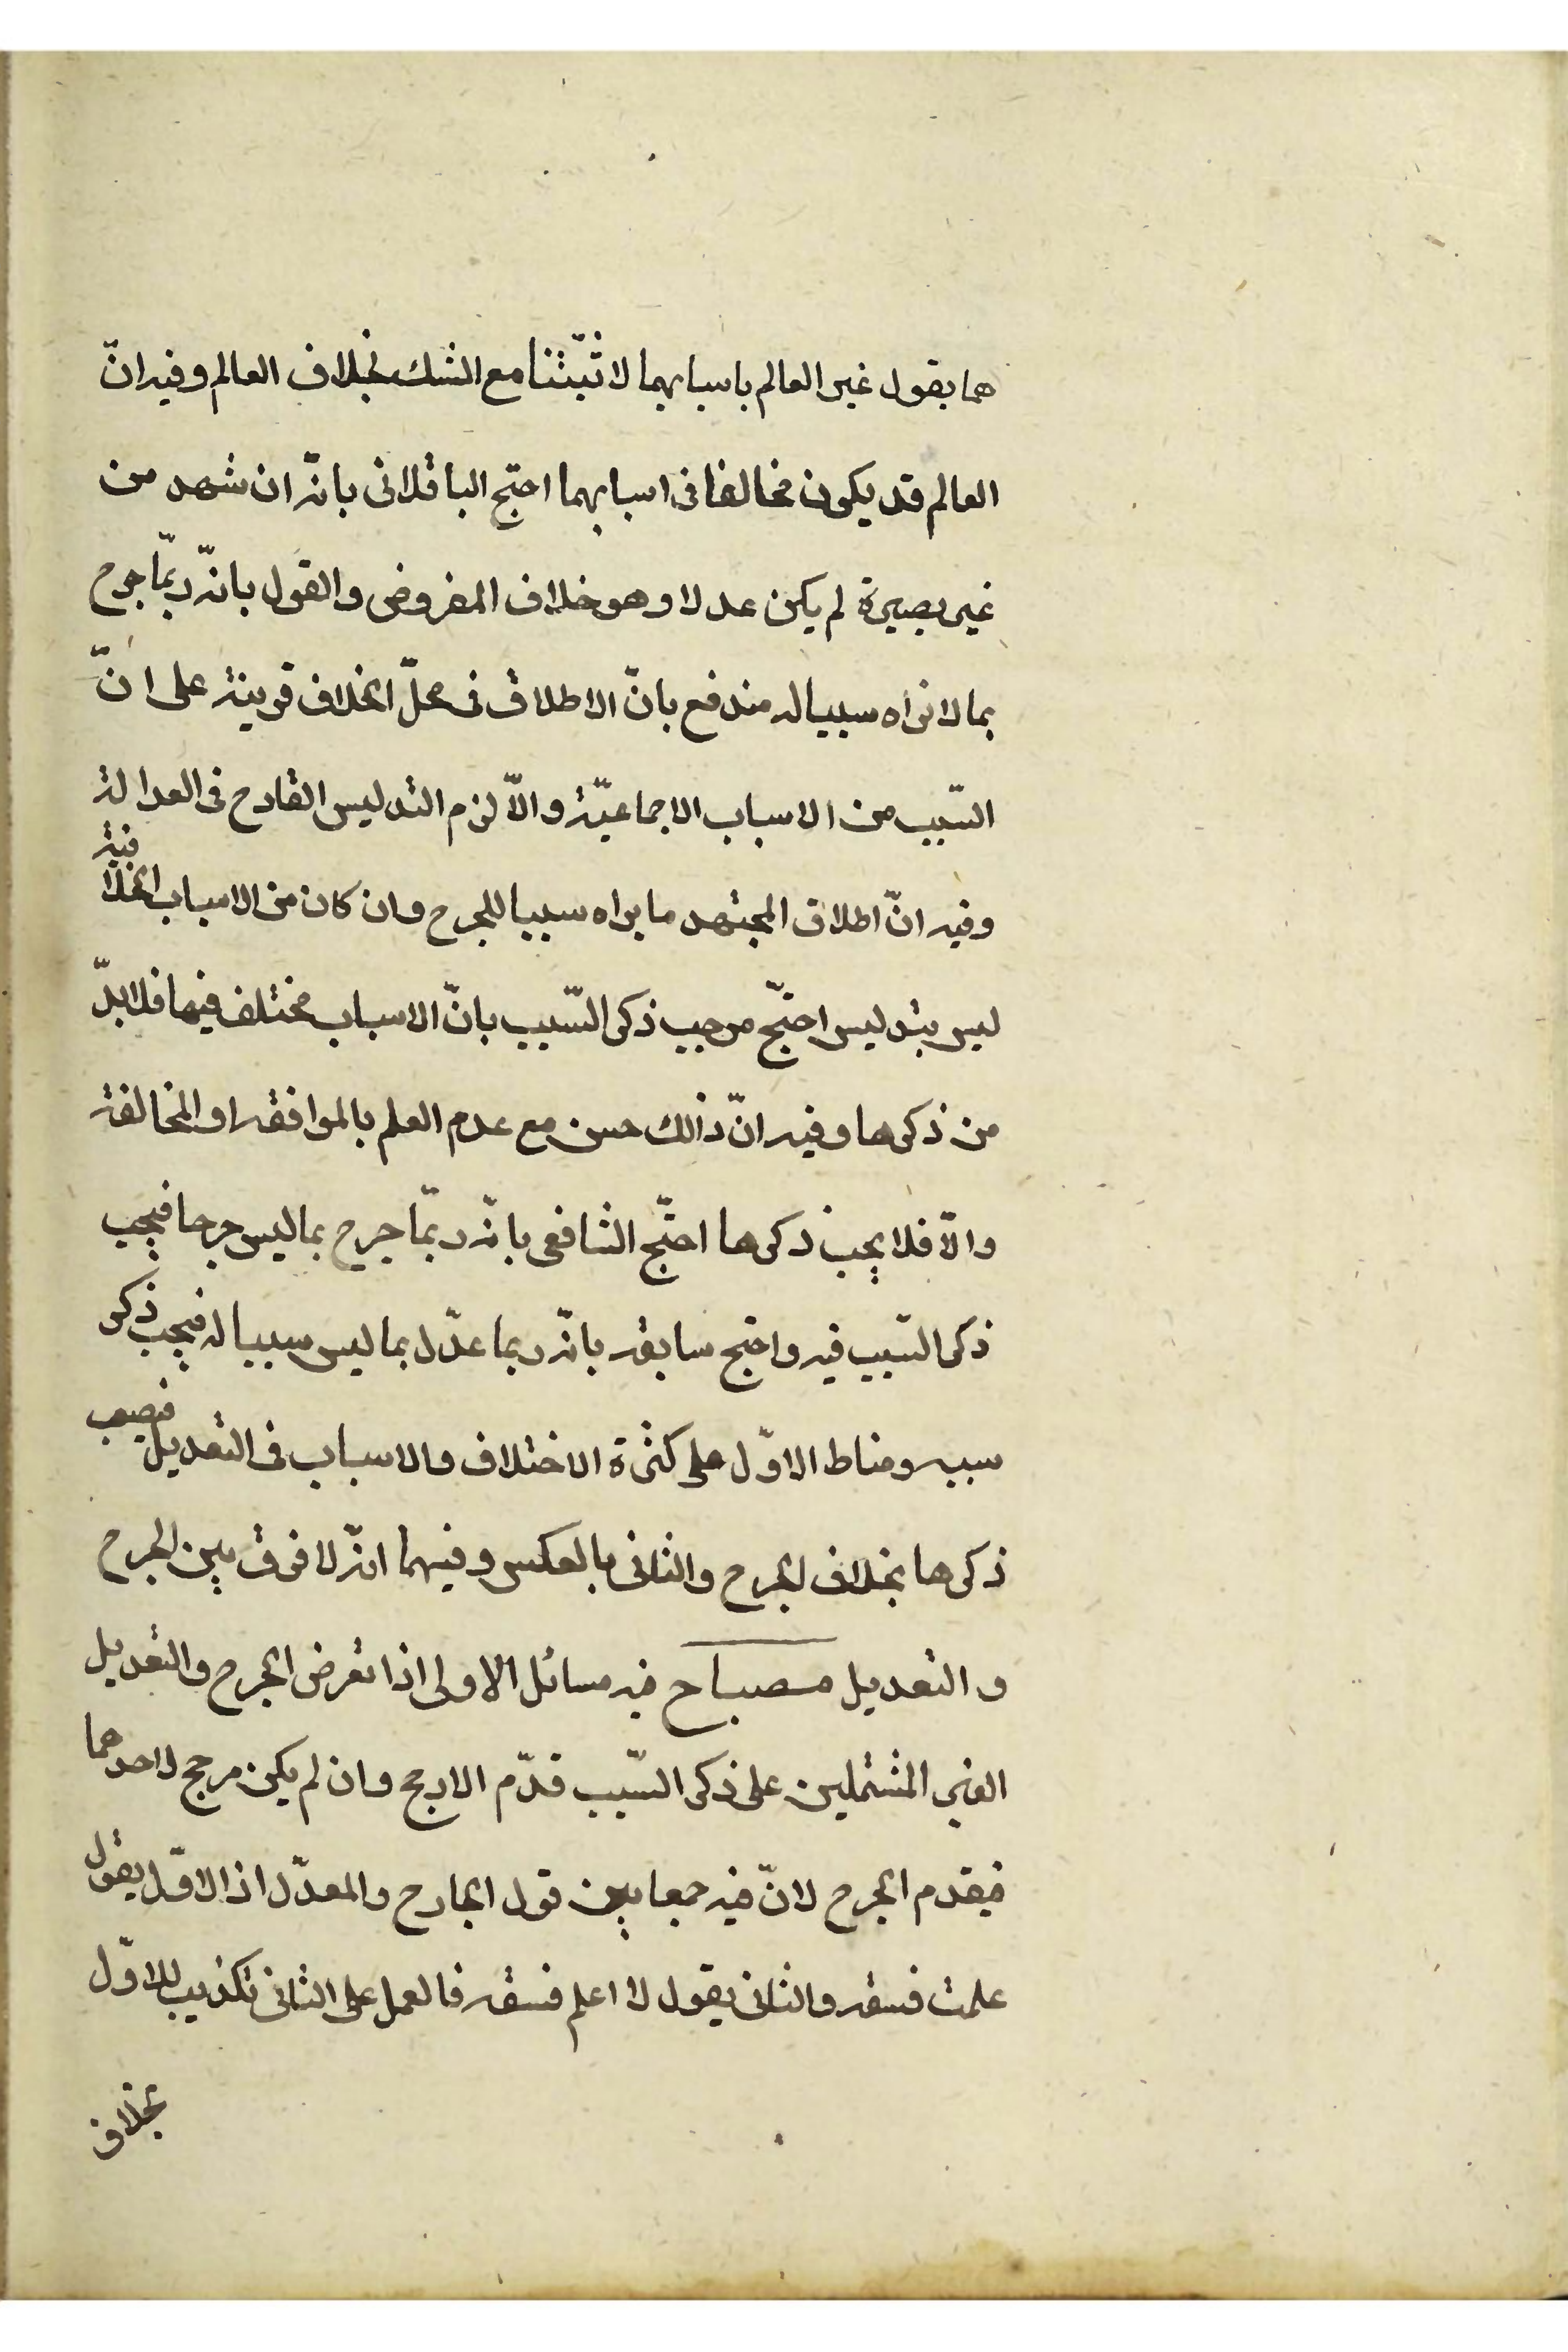 هما بقول غير العالم باسبابهما لاثبتنا مع الشك بخلاف العالم وفيه انّ
العالم قد يكون مخالفا فى اسبابهما احتج الباقلانى بانّه ان شهد من
غير بصيرة لم يكن عدلا وهو خلاف المفروض والقول بانّه ربّما جرح
بما لا نراه سببا له مندفع بانّ الاطلاق فى محلّ الخلاف قرينة على انّ
السّبب من الاسباب الاجماعيّة والّا لزم التدليس القادح فى العدالة
وفيه انّ اطلاق المجتهد ما يراه سببا للجرح وان كان من الاسباب الخلافية
ليس بتدليس احتجّ موجب ذكر السّبب بانّ الاسباب مختلف فيها فلا بدّ
من ذكرها وفيه انّ ذالك حسن مع عدم العلم بالموافقه او المخالفة
والّا فلا يجب ذكرها احتّج الشافعى بانّه ربّما جرح بما ليس جرحا فيجب
ذكر السّبب فيه واحتج سابقه بانّه ربما عدّل بما ليس سببا له فيجب ذكر
سببه ومناط الاوّل على كثرة الاختلاف والاسباب فى التعديل فيصعب
ذكرها بخلاف الجرح والثانى بالعكس وفيهما انّه لا فرق بين الجرح
والتعديل مصباح فيه مسائل الاولى اذا تعرض الجرح والتعديل
الغير المشتملين على ذكر السّبب قدّم الارجح وان لم يكن مرجح لاحدهما
فيقدم الجرح لانّ فيه جمعا بين قول الجارح والمعدّل اذ الاوّل يقول
علمت فسقه والثانى يقول لا اعلم فسقه فالعمل على الثانى تكذيب للاوّل
بخلاف